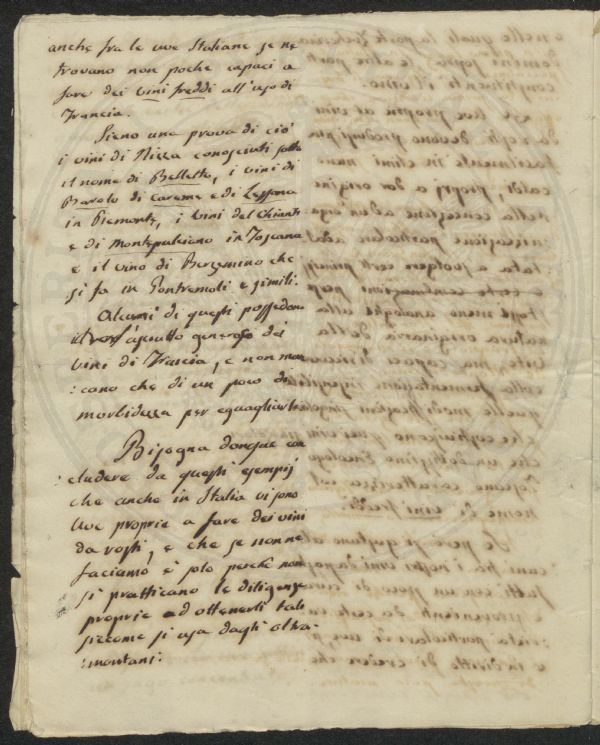 anche fra le uve Italiane se ne
trovano non poche capaci a
fare dei vini freddi all'uso di
Francia.
Sieno una prova di ciò
i vini di Nizza conosciuti sotto
il nome di Belletto, i vini di
Barolo di Careme e di Lessona
in Piemonte, i vini del Chianti
e di Montepulciano in Toscana
e il vino di Berzemino che
si fa in Pontremoli e simili.
Alcuni di questi possedono
asciutto generoso dei
vini di Francia, e non man
:cano che di un poco di
morbidezza per eguagliarli
Bisogna donque con
:cludere da questi esempj
che anche in Italia vi sono
Uve proprie a fare dei vini
da rosti, e che se non ne
faciamo è solo perchè non
si pratticano le diligenze
proprie ad ottenerli tali
siccome si usa dagli oltra
:montani: